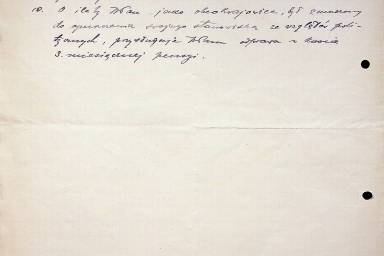 10. O ileby Pan jako obcokrajowiec, był zmuszony
do opuszczenia swojego stanowiska ze względów poli-
tycznych, przysługuje Panu odprawa w kwocie
3. miesięcznej pensji.